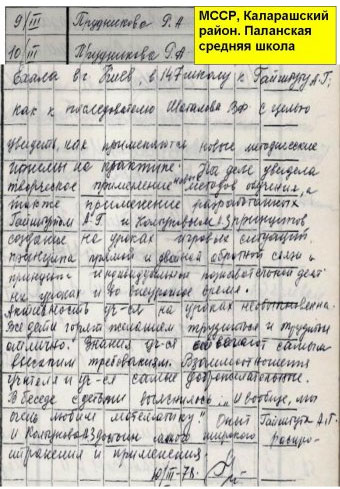 МССР, Каларашский
район. Паланская
средняя школа
9/III Прудникова Р.А
10/III Прудникова Р.А
Ехала в г Киев, в 147 школу к Гайштуту А.Г,
как к последователю Шаталова ВФ с целью
увидеть, как применяются новые методические
приемы на практике. На деле увидела
творческое применение новых методов обучения, а
также применение разработанных
Гайштутом А.Г и принципов
создание на уроках игровых ситуаций,
принципа прямой и двойной обратной связи и
принципа индивидуальной познавательной деят
на уроках и во внеурочное время.
Активность уч-ся на уроках необыкновенна.
Все дети горят желанием трудиться и трудятся
отлично. Знания уч-ся отвечают самым
высоким требованиям. Взаимоотношения
учителя и уч-ся самые доброжелательные.
В беседе с детьми выяснилось „И вообще, мы
очень любим математику". Опыт Гайштута А.Г.
и достоин самого широкого распро-
странения и применения.
10/III-78.